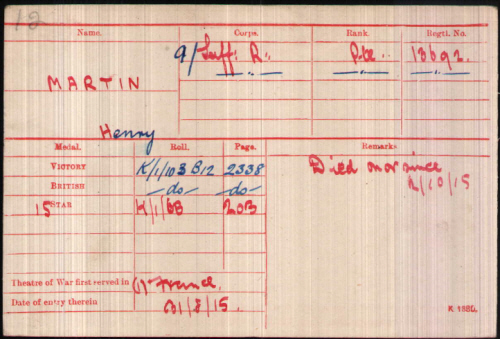 12
Name. Corps. Rank. Regtl. No.
9/Suff: R. Pte 13692.
MARTIN
Henry
Medal. Roll. Page. Remarks
VICTORY K/1/103 B12 2338 Died on or since
BRITISH —do— —do— 2/10/15
15 STAR K/1/68 20B
Theatre of War first served in (1) France.
Date of entry therein 31/8/15.
K 1380.